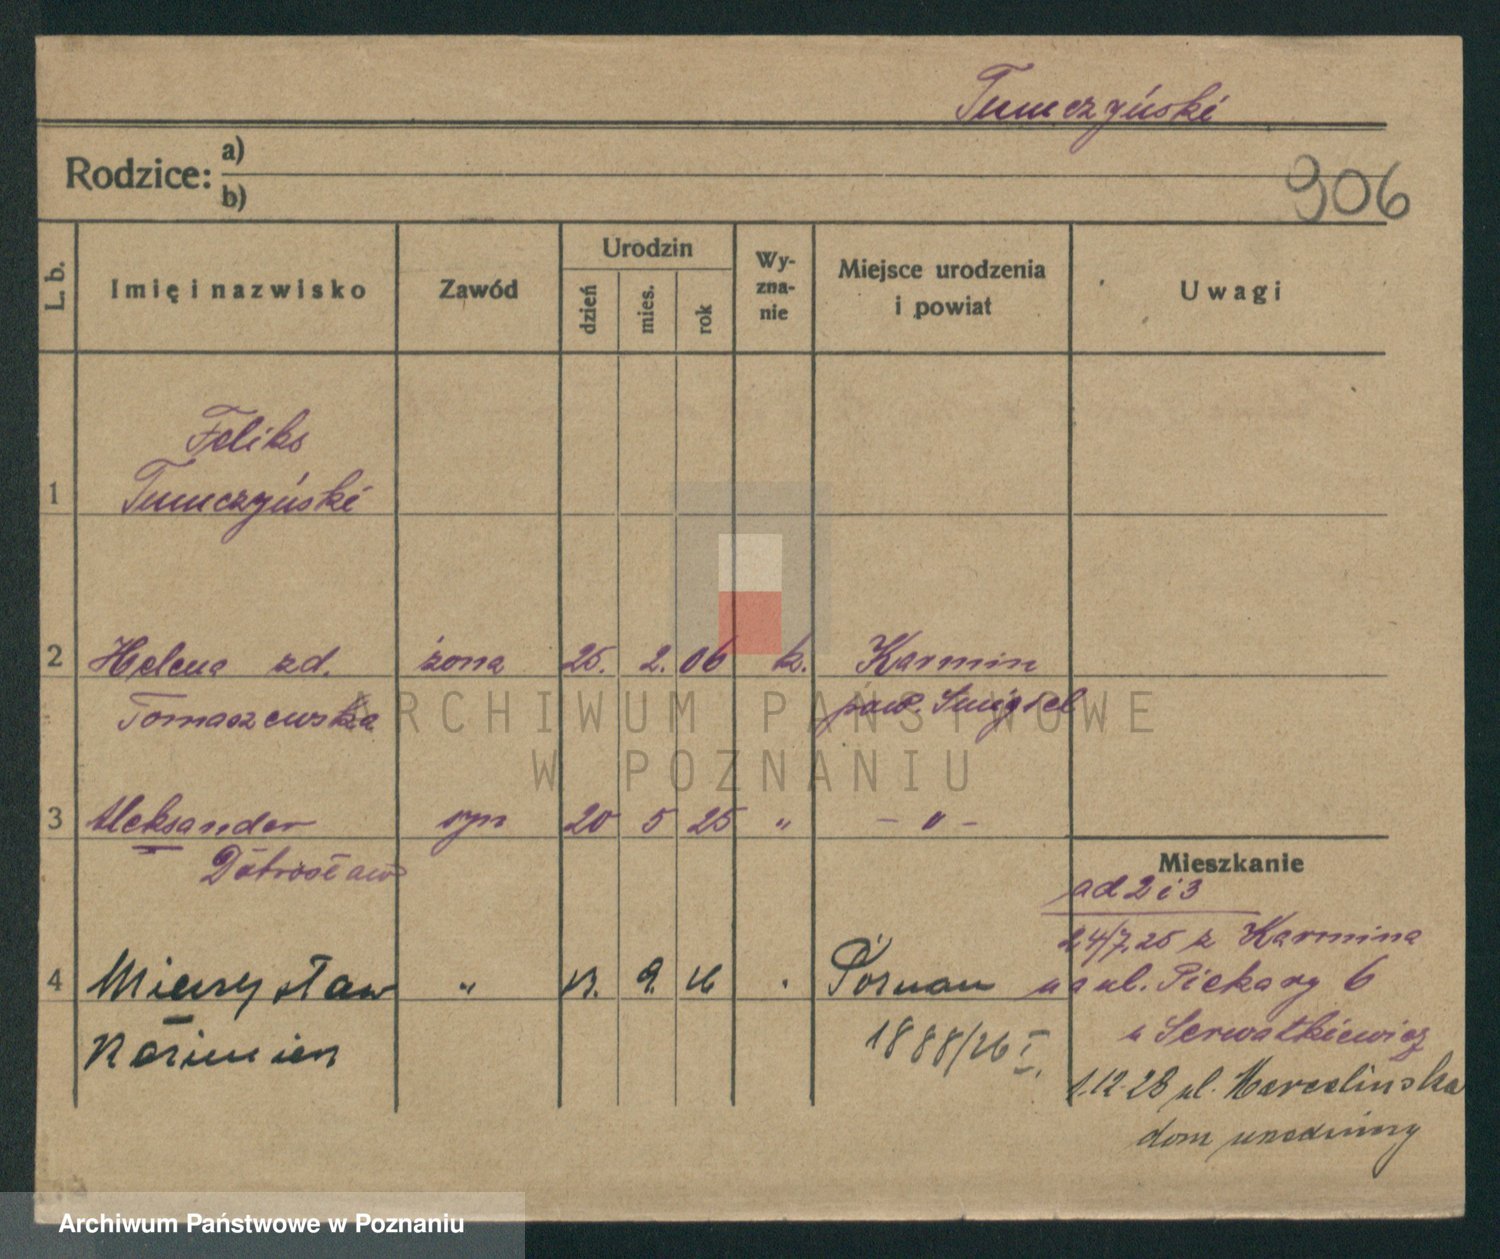 Tumczyński
Rodzice: a)
b)
906
L. b.
Imię i nazwisko
Zawód
Urodzin
dzień
mies.
rok
Wy-
zna-
nie
Miejsce urodzenia
i powiat
Uwagi
Feliks
1 Tumczyński
2 Helena zd. żona 25. 2. 06 k. Karmin
Tomaszewska pow. Śmigiel
3 Aleksander syn 20 5 25 " - " -
Dobrosław
Mieszkanie
ad 2 i 3
24/7.25 z Karmina
4 Mieczysław " 13. 9. 26 " Poznań
na ul. Piekary 6
Kazimierz 1888/26 I.
u Serwatkiewicz
1.12.28 ul. Marcelińska
dom
ARCHIWUM PAŃSTWOWE
W POZNANIU
Archiwum Państwowe w Poznaniu